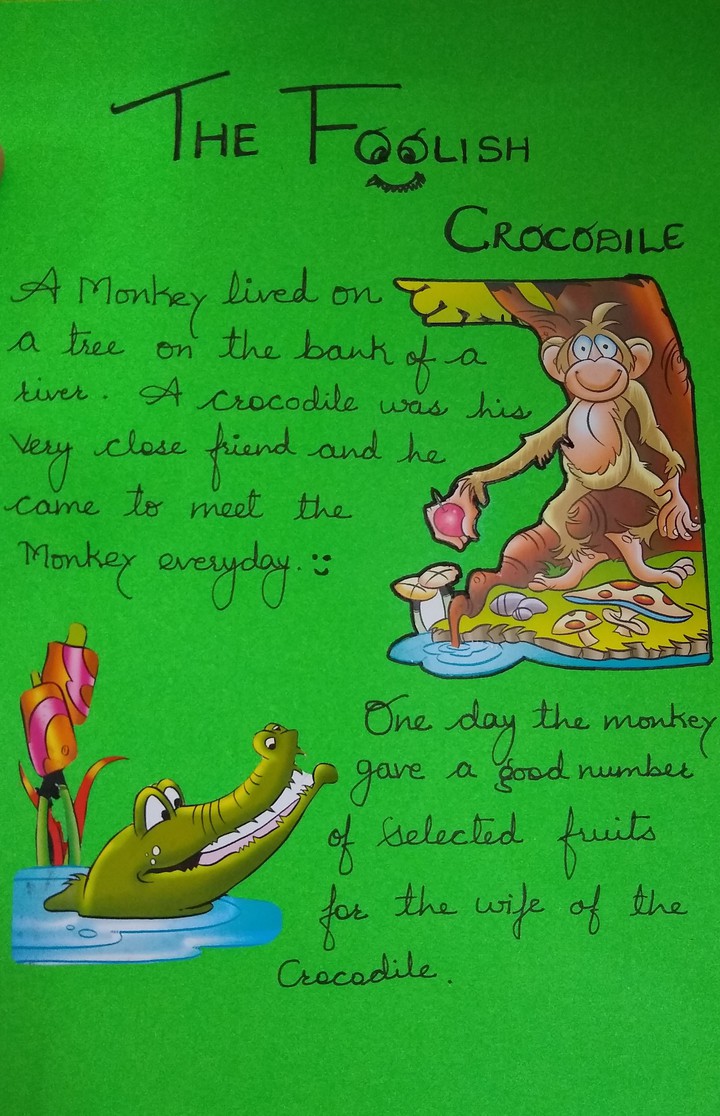 THE FOOLISH
CROCODILE
A Monkey lived on
a tree on the bank of a
river. A crocodile was his
very close friend and he
came to meet the
Monkey everyday.
One day the monkey
gave a good number
of selected fruits
for the wife of the
Crocodile.